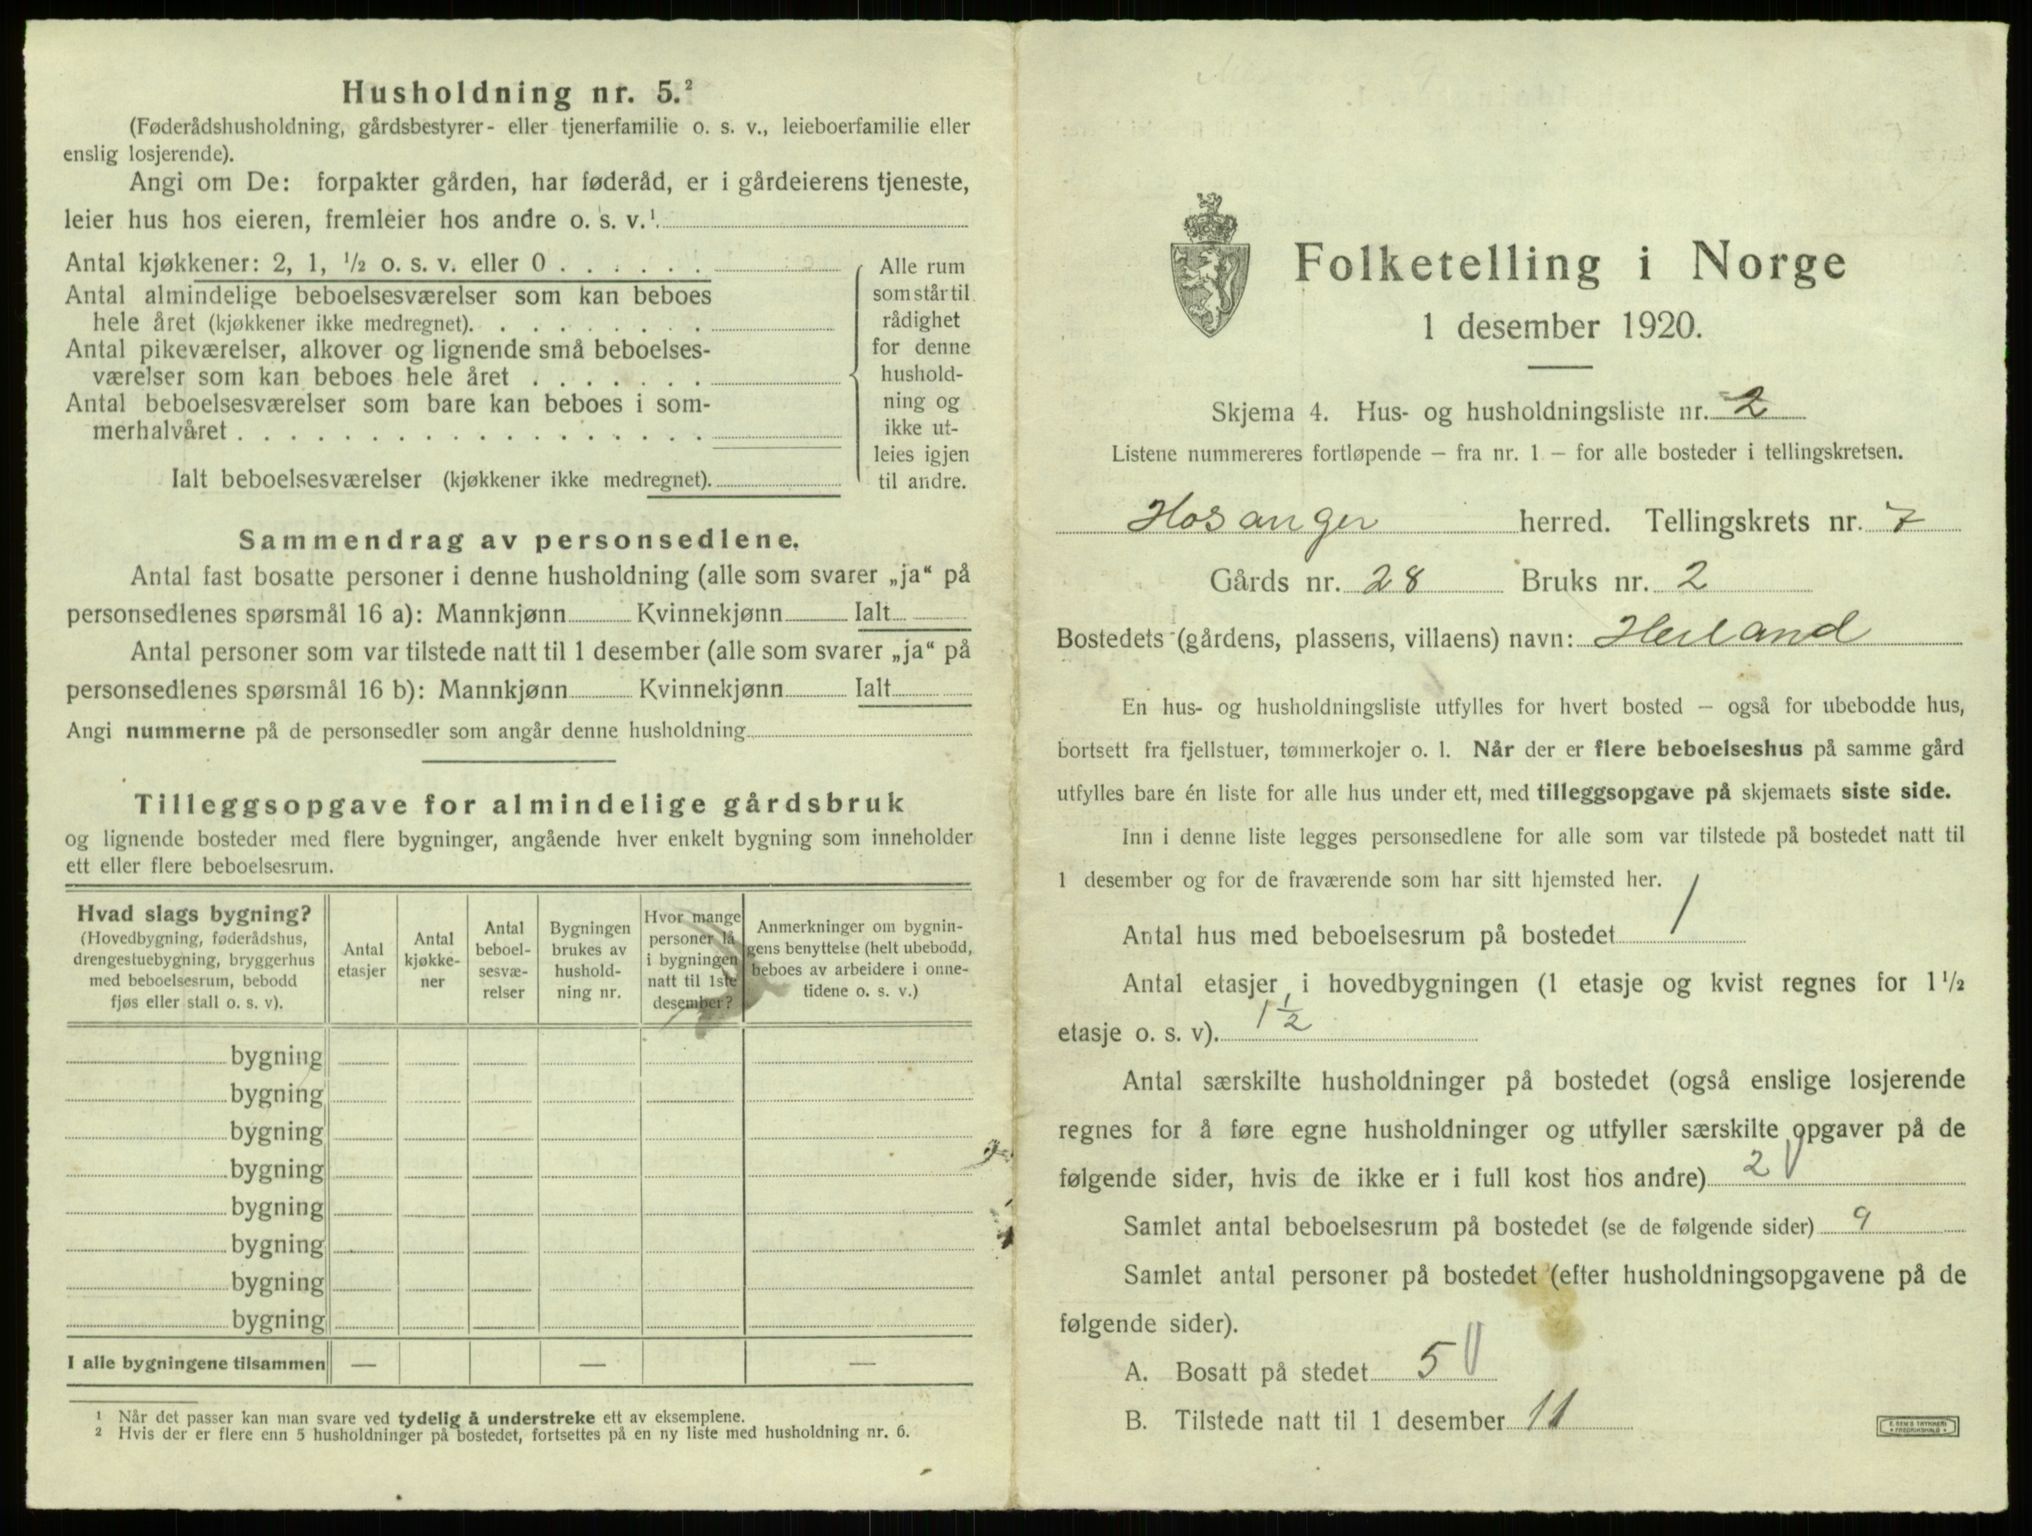 Husholdning nr. 5.²
(Føderådshusholdning, gårdsbestyrer- eller tjenerfamilie o. s. v., leieboerfamilie eller
enslig losjerende).
Angi om De: forpakter gården, har føderåd, er i gårdeierens tjeneste,
leier hus hos eieren, fremleier hos andre o. s. v.¹
Antal kjøkkener: 2, 1, ½ o. s. v. eller 0
Antal almindelige beboelsesværelser som kan beboes
hele året (kjøkkener ikke medregnet).
Antal pikeværelser, alkover og lignende små beboelses-
værelser som kan beboes hele året
Antal beboelsesværelser som bare kan beboes i som-
merhalvåret
Ialt beboelsesværelser (kjøkkener ikke medregnet).
Alle rum
som står til
rådighet
for denne
hushold-
ning og
ikke ut-
leies igjen
til andre.
Sammendrag av personsedlene.
Antal fast bosatte personer i denne husholdning (alle som svarer „ja“ på
personsedlenes spørsmål 16 a): Mannkjønn Kvinnekjønn Ialt
Antal personer som var tilstede natt til 1 desember (alle som svarer „ja“ på
personsedlenes spørsmål 16 b): Mannkjønn Kvinnekjønn Ialt
Angi nummerne på de personsedler som angår denne husholdning
Tilleggsopgave for almindelige gårdsbruk
og lignende bosteder med flere bygninger, angående hver enkelt bygning som inneholder
ett eller flere beboelsesrum.
Hvad slags bygning?
(Hovedbygning, føderådshus,
drengestuebygning, bryggerhus
med beboelsesrum, bebodd
fjøs eller stall o. s. v).
Antal
etasjer
Antal
kjøkke-
ner
Antal
beboel-
sesvæ-
relser
Bygningen
brukes av
hushold-
ning nr.
Hvor mange
personer lå
i bygningen
natt til 1ste
desember?
Anmerkninger om bygnin-
gens benyttelse (helt ubebodd,
beboes av arbeidere i onne-
tidene o. s. v.)
bygning
bygning
bygning
bygning
bygning
bygning
bygning
bygning
I alle bygningene tilsammen — — —
¹ Når det passer kan man svare ved tydelig å understreke ett av eksemplene.
² Hvis der er flere enn 5 husholdninger på bostedet, fortsettes på en ny liste med husholdning nr. 6.
Folketelling i Norge
1 desember 1920.
Skjema 4. Hus- og husholdningsliste nr. 2
Listene nummereres fortløpende – fra nr. 1 – for alle bosteder i tellingskretsen.
Hosanger herred. Tellingskrets nr. 7
Gårds nr. 28 Bruks nr. 2
Bostedets (gårdens, plassens, villaens) navn: Heiland
En hus- og husholdningsliste utfylles for hvert bosted – også for ubebodde hus,
bortsett fra fjellstuer, tømmerkojer o. l. Når der er flere beboelseshus på samme gård
utfylles bare én liste for alle hus under ett, med tilleggsopgave på skjemaets siste side.
Inn i denne liste legges personsedlene for alle som var tilstede på bostedet natt til
1 desember og for de fraværende som har sitt hjemsted her.
Antal hus med beboelsesrum på bostedet 1
Antal etasjer i hovedbygningen (1 etasje og kvist regnes for 1½
etasje o. s. v). 1½
Antal særskilte husholdninger på bostedet (også enslige losjerende
regnes for å føre egne husholdninger og utfyller særskilte opgaver på de
følgende sider, hvis de ikke er i full kost hos andre) 2
Samlet antal beboelsesrum på bostedet (se de følgende sider) 9
Samlet antal personer på bostedet (efter husholdningsopgavene på de
følgende sider).
A. Bosatt på stedet 5
B. Tilstede natt til 1 desember 11